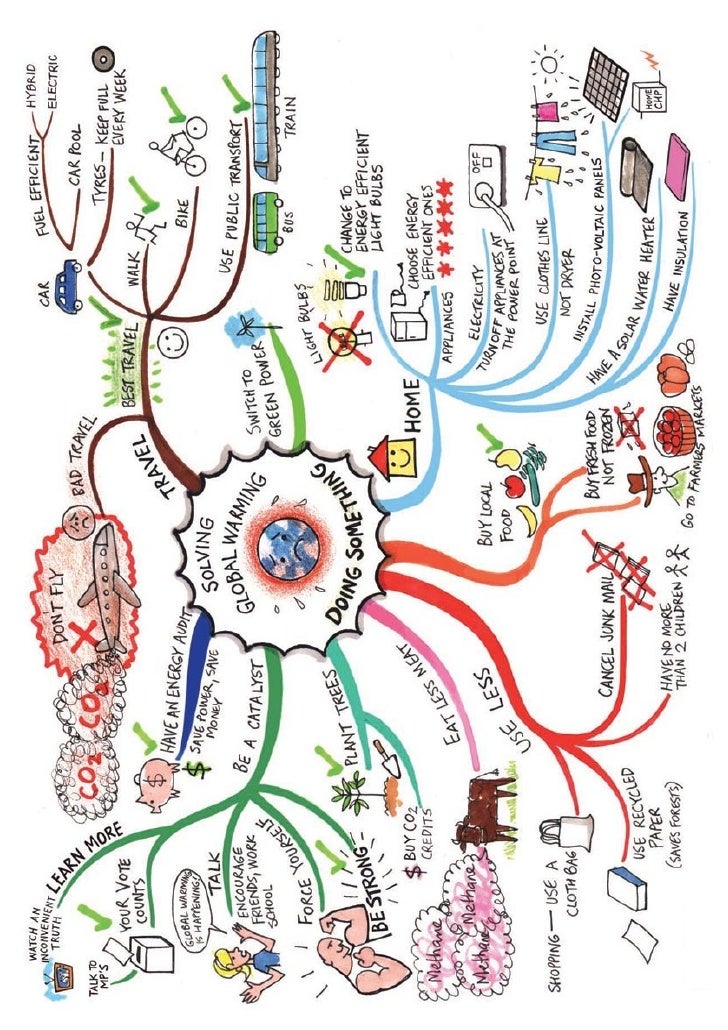 SOLVING
GLOBAL WARMING
DOING SOMETHING
SWITCH TO
GREEN POWER
HOME
LIGHT BULBS
CHANGE TO
ENERGY EFFICIENT
LIGHT BULBS
APPLIANCES
CHOOSE ENERGY
EFFICIENT ONES
ELECTRICITY
TURN OFF APPLIANCES AT
THE POWER POINT
OFF
USE CLOTHES LINE
NOT DRYER
INSTALL PHOTO-VOLTAIC PANELS
HOME
CHP
HAVE A SOLAR WATER HEATER
HAVE INSULATION
BUY LOCAL
FOOD
BUY FRESH FOOD
NOT FROZEN
GO TO FARMERS MARKETS
USE LESS
CANCEL JUNK MAIL
HAVE NO MORE
THAN 2 CHILDREN
USE RECYCLED
PAPER
(SAVES FORESTS)
SHOPPING — USE A
CLOTH BAG
EAT LESS MEAT
Methane
Methane
Methane
PLANT TREES
$ BUY CO2
CREDITS
BE A CATALYST
BE STRONG
FORCE YOURSELF
TALK
ENCOURAGE
FRIENDS, WORK
SCHOOL
GLOBAL WARMING
IS HAPPENING!
YOUR VOTE
COUNTS
TALK TO
MP'S
LEARN MORE
WATCH AN
INCONVENIENT
TRUTH
HAVE AN ENERGY AUDIT
$ SAVE POWER, SAVE
MONEY
$
TRAVEL
BAD TRAVEL
DONT FLY
CO2 CO2
BEST TRAVEL
CAR
FUEL EFFICIENT
HYBRID
ELECTRIC
CAR POOL
TYRES — KEEP FULL
EVERY WEEK
WALK
BIKE
USE PUBLIC TRANSPORT
BUS
TRAIN